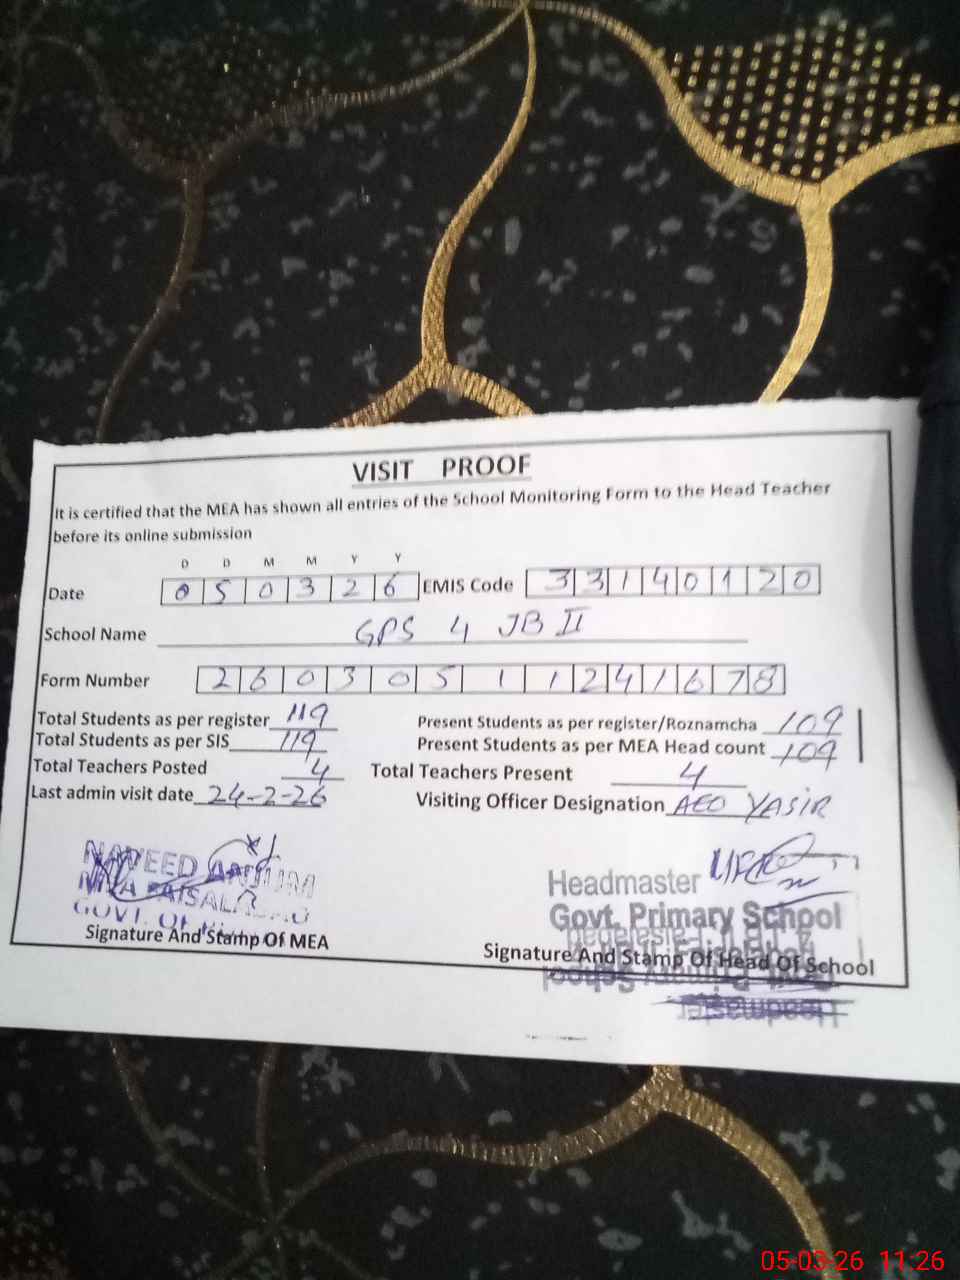 VISIT PROOF
It is certified that the MEA has shown all entries of the School Monitoring Form to the Head Teacher
before its online submission
D D M M Y Y
Date 0 5 0 3 2 6 EMIS Code 3 3 1 4 0 1 2 0
School Name GPS 4 JB II
Form Number 2 6 0 3 0 5 1 1 2 4 1 6 7 8
Total Students as per register 119 Present Students as per register/Roznamcha 109
Total Students as per SIS 119 Present Students as per MEA Head count 109
Total Teachers Posted 4 Total Teachers Present 4
Last admin visit date 24-2-26 Visiting Officer Designation AEO YASIR
NAVEED ANJUM
MEA FAISALABAD
GOVT. OF
Signature And Stamp Of MEA
Headmaster
Govt. Primary School
Faisalabad
Signature And Stamp Of Head Of School
Govt. Primary School
Headmaster
05-03-26 11:26